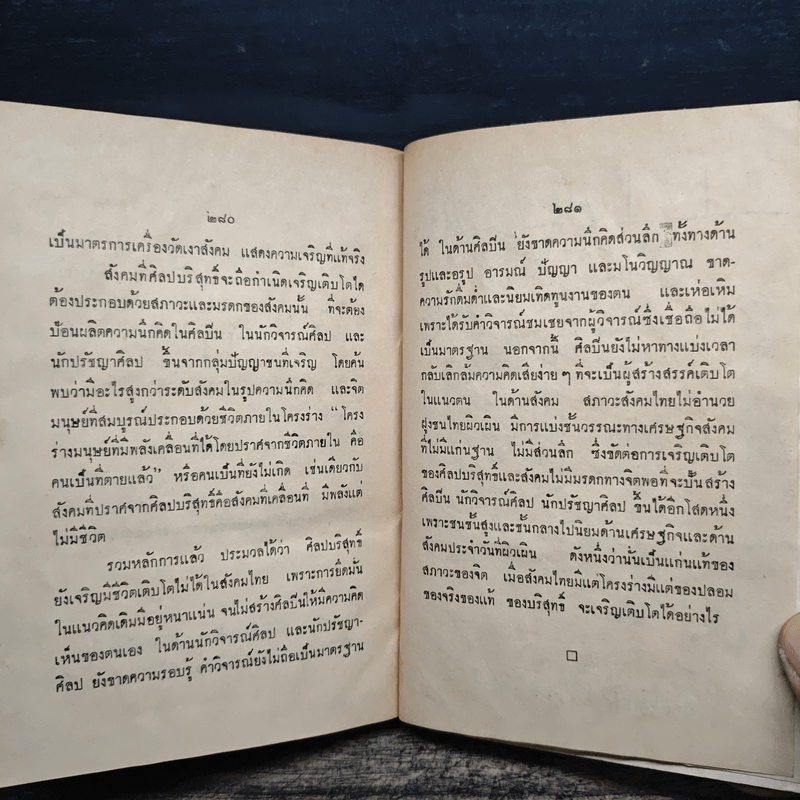 ๒๘๐
เป็นมาตรการเครื่องวัดเงาสังคม แสดงความเจริญที่แท้จริง
สังคมที่ศิลปบริสุทธิ์จะถือกำเนิดเจริญเติบโตได้
ต้องประกอบด้วยสภาวะและมรดกของสังคมนั้น ที่จะต้อง
ป้อนผลิตความนึกคิดในศิลปิน ในนักวิจารณ์ศิลป และ
นักปรัชญาศิลป ขึ้นจากกลุ่มปัญญาชนที่เจริญ โดยค้น
พบว่ามีอะไรสูงกว่าระดับสังคมในรูปความนึกคิด และจิต
มนุษย์ที่สมบูรณ์ประกอบด้วยชีวิตภายในโครงร่าง “โครง
ร่างมนุษย์ที่มีพลังเคลื่อนที่ได้โดยปราศจากชีวิตภายใน คือ
คนเป็นที่ตายแล้ว” หรือคนเป็นที่ยังไม่เกิด เช่นเดียวกับ
สังคมที่ปราศจากศิลปบริสุทธิ์คือสังคมที่เคลื่อนที่ มีพลังแต่
ไม่มีชีวิต
รวมหลักการแล้ว ประมวลได้ว่า ศิลปบริสุทธิ์
ยังเจริญมีชีวิตเติบโตไม่ได้ในสังคมไทย เพราะการยึดมั่น
ในแนวคิดเดิมมีอยู่หนาแน่น จนไม่สร้างศิลปินให้มีความคิด
เห็นของตนเอง ในด้านนักวิจารณ์ศิลป และนักปรัชญา-
ศิลป ยังขาดความรอบรู้ คำวิจารณ์ยังไม่ถือเป็นมาตรฐาน
๒๘๑
ได้ ในด้านศิลปิน ยังขาดความนึกคิดส่วนลึก ทั้งทางด้าน
รูปและอรูป อารมณ์ ปัญญา และมโนวิญญาณ ขาด-
ความรักดื่มด่ำและนิยมเทิดทูนงานของตน และเห่อเหิม
เพราะได้รับคำวิจารณ์ชมเชยจากผู้วิจารณ์ซึ่งเชื่อถือไม่ได้
เป็นมาตรฐาน นอกจากนี้ ศิลปินยังไม่หาทางแบ่งเวลา
กลับเลิกล้มความคิดเสียง่าย ๆ ที่จะเป็นผู้สร้างสรรค์เติบโต
ในแนวตน ในด้านสังคม สภาวะสังคมไทยไม่อำนวย
ฝูงชนไทยผิวเผิน มีการแบ่งชั้นวรรณะทางเศรษฐกิจสังคม
ที่ไม่มีแก่นฐาน ไม่มีส่วนลึก ซึ่งขัดต่อการเจริญเติบโต
ของศิลปบริสุทธิ์และสังคมไม่มีมรดกทางจิตพอที่จะปั้นสร้าง
ศิลปิน นักวิจารณ์ศิลป นักปรัชญาศิลป ขึ้นได้อีกโสดหนึ่ง
เพราะชนชั้นสูงและชั้นกลางไปนิยมด้านเศรษฐกิจและด้าน
สังคมประจำวันที่ผิวเผิน ดังหนึ่งว่านั่นเป็นแก่นแท้ของ
สภาวะของจิต เมื่อสังคมไทยมีแต่โครงร่างมีแต่ของปลอม
ของจริงของแท้ ของบริสุทธิ์ จะเจริญเติบโตได้อย่างไร